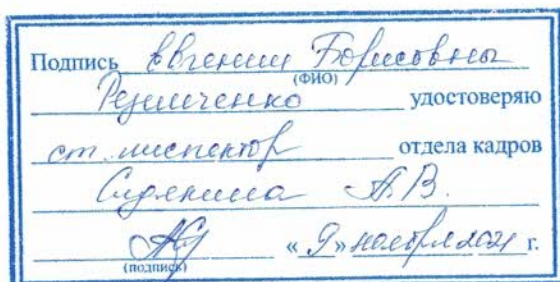 Подпись Евгении Борисовны
(ФИО)
Резниченко удостоверяю
ст. инспектор отдела кадров
А.В.
(подпись) « 9 » ноября 2021 г.